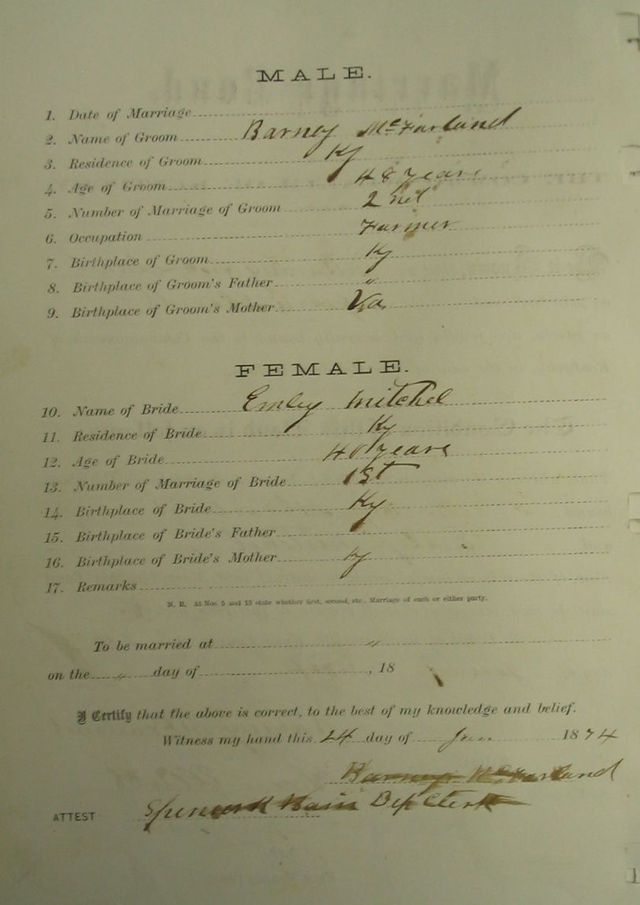 MALE.
1. Date of Marriage
2. Name of Groom Barney McFarland
3. Residence of Groom Ky
4. Age of Groom 48 years
5. Number of Marriage of Groom 2nd
6. Occupation Farmer
7. Birthplace of Groom Ky
8. Birthplace of Groom's Father "
9. Birthplace of Groom's Mother Va
FEMALE.
10. Name of Bride Emley Mitchel
11. Residence of Bride Ky
12. Age of Bride 40 years
13. Number of Marriage of Bride 1st
14. Birthplace of Bride Ky
15. Birthplace of Bride's Father
16. Birthplace of Bride's Mother Ky
17. Remarks
N. B. At Nos. 5 and 13 state whether first, second, etc., Marriage of each or either party.
To be married at "
on the " day of , 18
I Certify that the above is correct, to the best of my knowledge and belief.
Witness my hand this 24 day of Jan 1874
Barney McFarland
ATTEST Dep Clerk